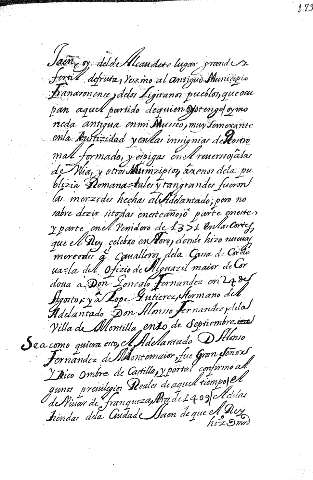 193
Jaen, oy del de Alcaudete lugar grande y
fertil de fruta, vezino al antiguo Municipio
Tranaronense, y de los Ligiranos pueblos, que ocu
pan aquel partido de quien yo tengo oy mo
neda antigua en mi Museo, muy semexante
en la Antiguedad y en las insignias de Rostro
mal formado, y espigas en el reverso a las
de Ulia, y otros Munizipios, axenos de la pu
blizia Romana. Tales y tan grandes fueron
las merzedes hechas al Adelantado; pero no
sabre dezir si todas en este año, o parte en este
y parte en el Venidero de 1371 en las Cortes,
que el Rey celebro en Toro, donde hizo nuevas
mercedes a Cavalleros de la Casa de Cordo
va: la del Oficio de Alguazil maior de Cor
dova a Don Gonzalo Fernandez en 24 de
Agosto, y a Lope Gutierez, Hermano del
Adelantado Don Alonso Fernandez, de la
Villa de Montilla, en 20 de Septiembre.
Sea como quiera era, el Adelantado D. Alonso
Fernandez de Montemaior fue Gran Señor
y Rico ombre de Castilla, y por tal confirmo al
gunos previlegios Reales de aquel tiempo, el
de Viviar de franqueza, Año de 1409, el de las
tiendas de la Ciudad de Jaen de que el Rey
hizo